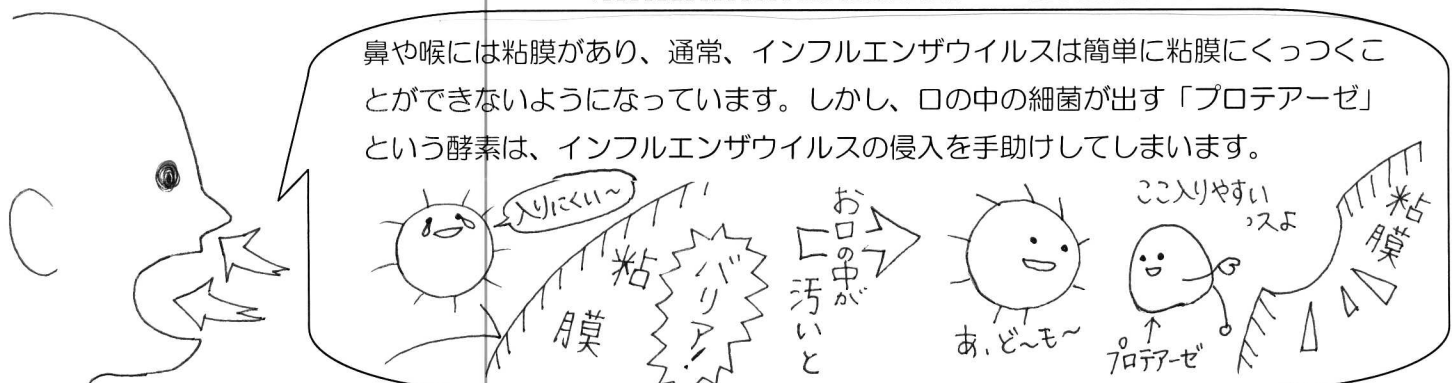 鼻や喉には粘膜があり、通常、インフルエンザウイルスは簡単に粘膜にくっつくこ
とができないようになっています。しかし、口の中の細菌が出す「プロテアーゼ」
という酵素は、インフルエンザウイルスの侵入を手助けしてしまいます。
入りにくい〜
粘膜
バリア!
お口の中が
汚いと
あ、ど〜も〜
ここ入りやすい
っスよ
プロテアーゼ
粘膜